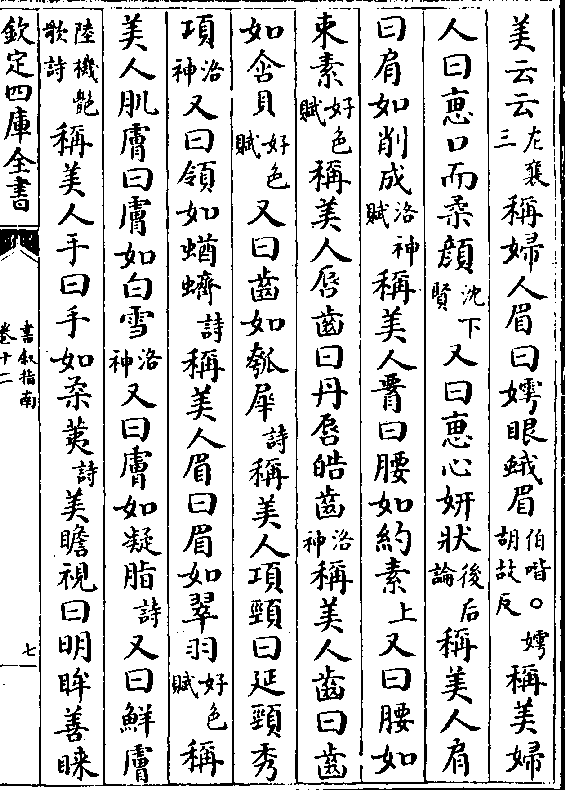 美云云左襄三稱婦人眉曰嫮眼蛾眉伯喈○嫮胡故反稱美婦
人曰恵口而柔顔沈下賢又曰恵心妍狀後后論稱美人肩
曰肩如削成洛神賦稱美人䏚曰腰如約素上又曰腰如
束素好色賦稱美人唇齒曰丹唇皓齒洛神稱美人齒曰齒
如含貝好色賦又曰齒如瓠犀詩稱美人項頸曰延頸秀
項洛神又曰領如蝤蠐詩稱美人眉曰眉如翠羽好色賦稱
美人肌膚曰膚如白雪洛神又曰膚如凝脂詩又曰鮮膚
陸機艶歌詩稱美人手曰手如柔荑詩美瞻視曰明眸善睐
欽定四庫全書
書叙指南
卷十二
七